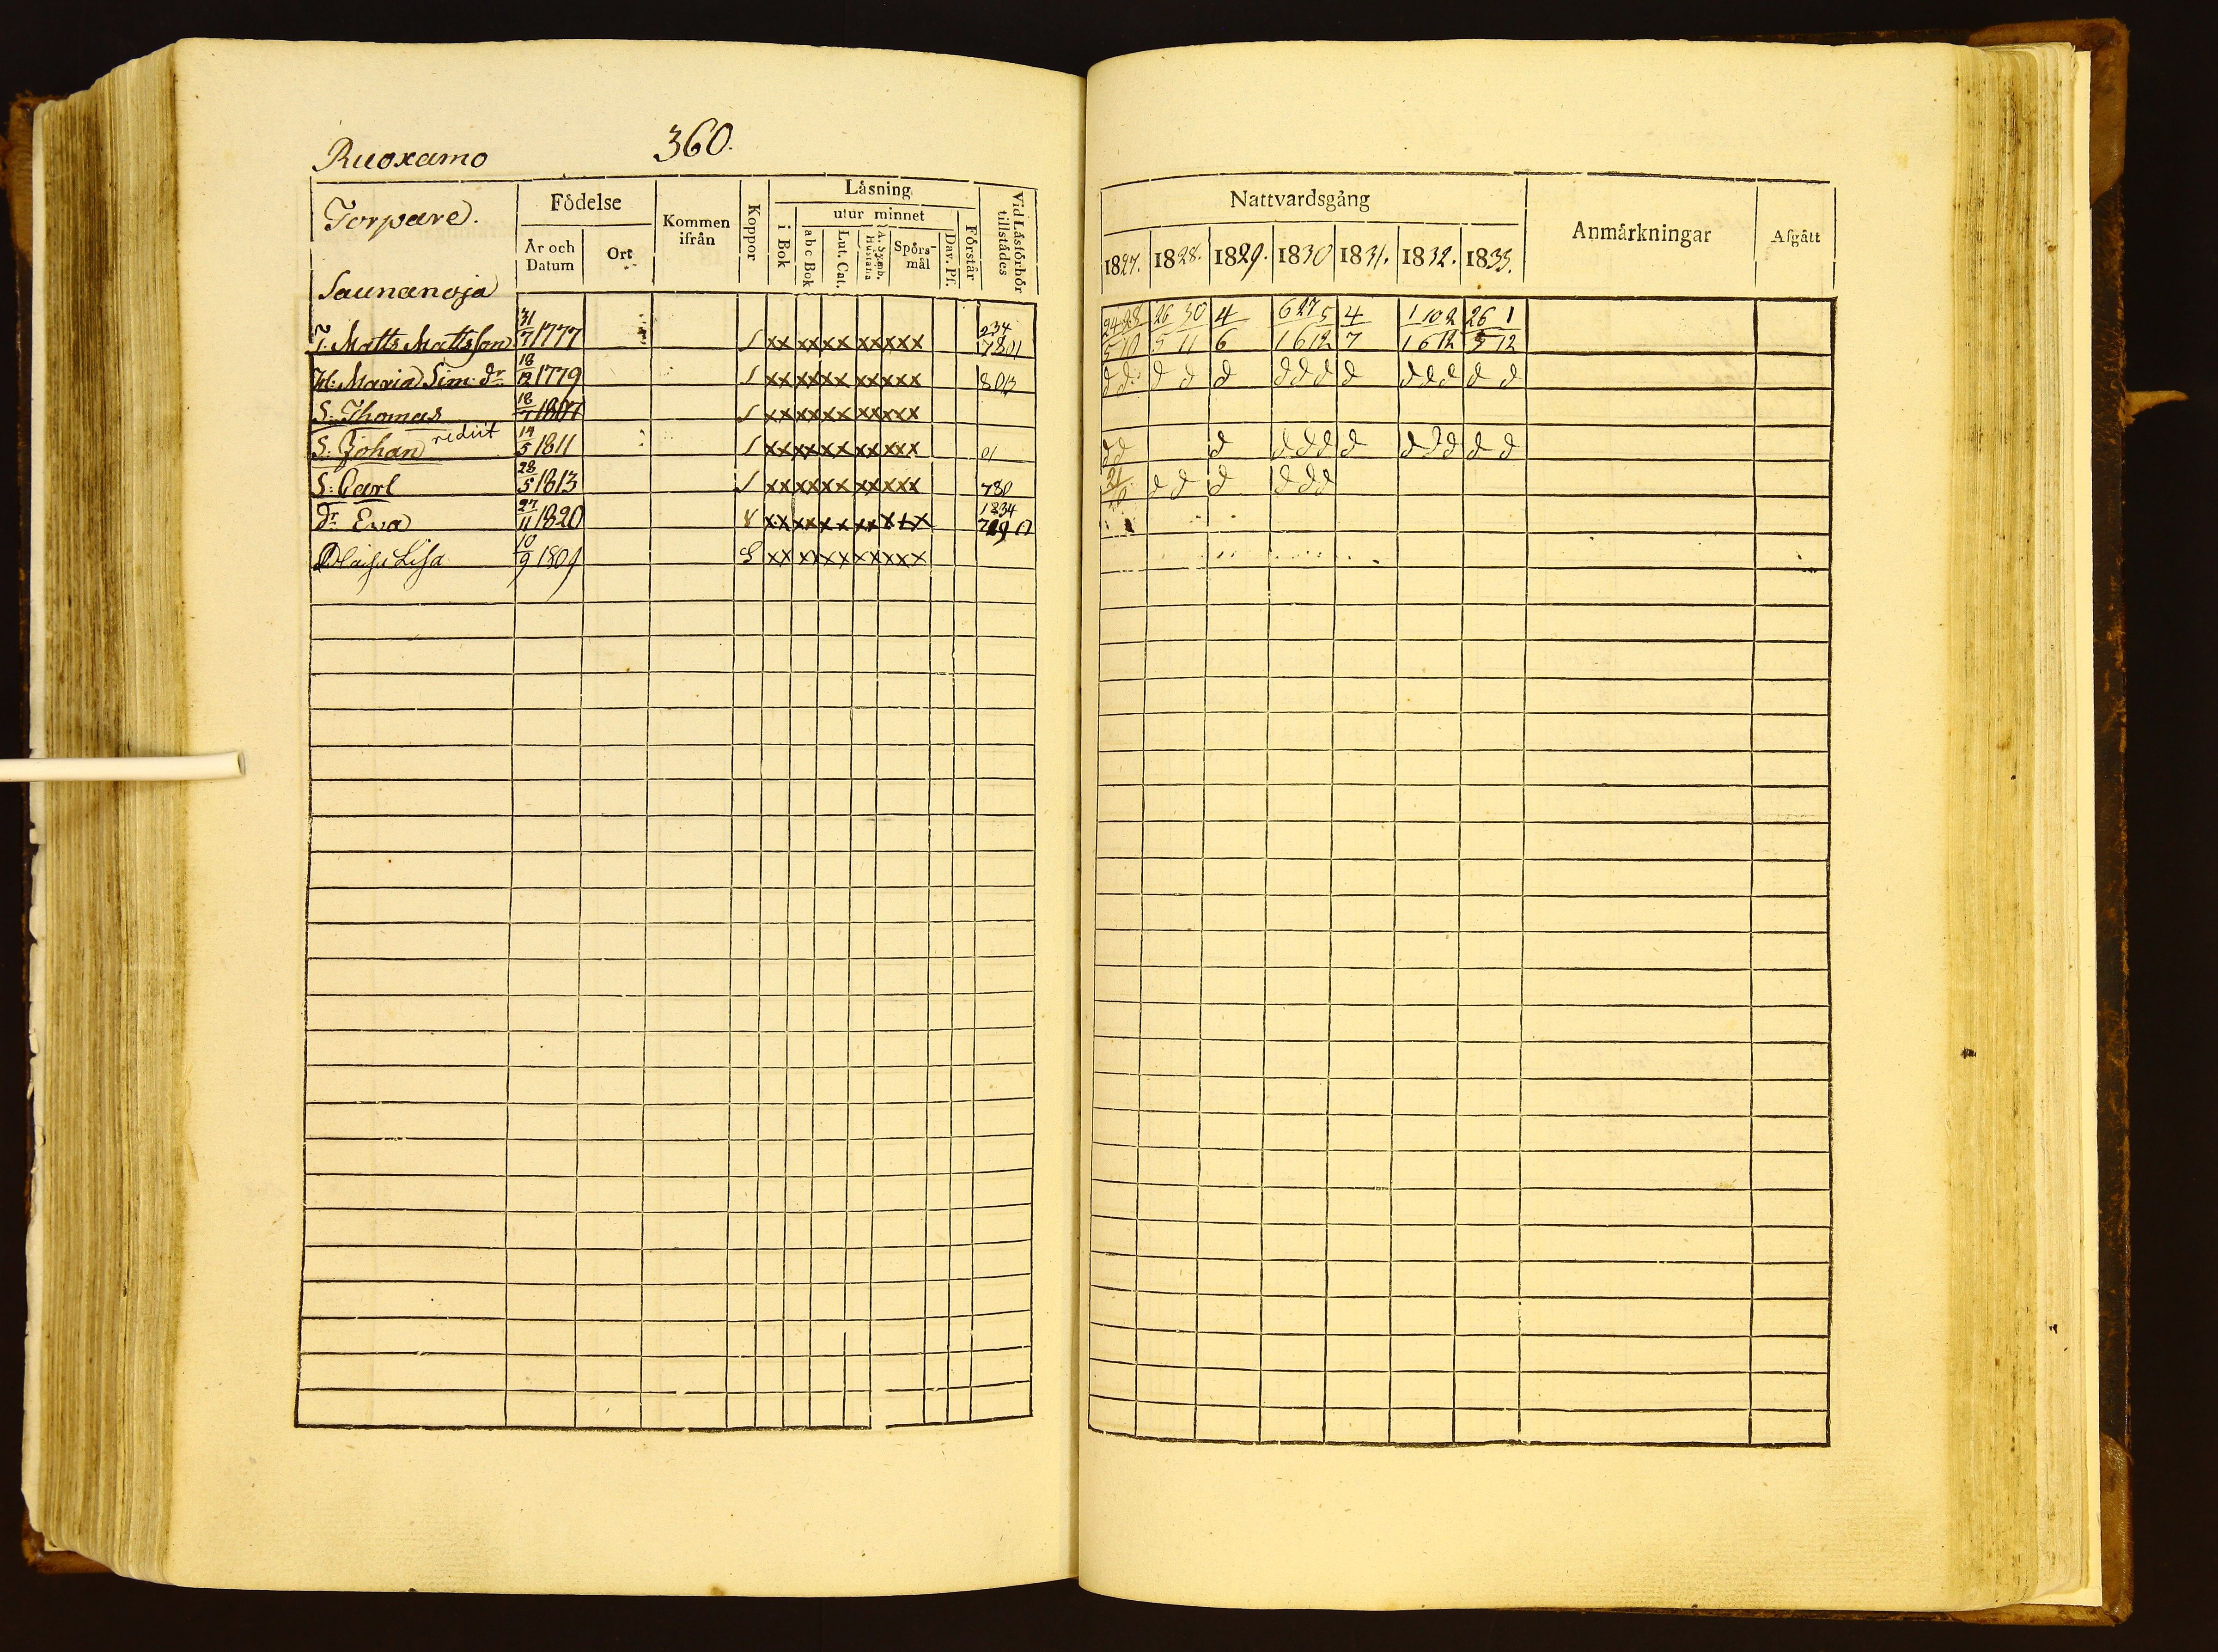 Ruoxamo 360.
Torpare.
Födelse
Kommen ifrån
Koppor
Låsning
Vid Låsförhör tillstådes
År och Datum
Ort
i Bok
utur minnet
Förstår
abc Bok
Lut. Cat.
A. Symb. Hustafla
Spörsmål
Dav. Pf.
Saunanoja
T. Matts Mattsson 31/7 1777 S xx xx xx xx xxx 234 7801
H: Maria Sim: dr 18/12 1779 S xx xx xx xx xxx
S: Thomas 18/7 1807 S xx xx xx xx xxx
S: Johan rediit 14/5 1811 S xx xx xx xx xxx 01
S: Carl 28/5 1813 S xx xx xx xx xxx 780
dr Eva 27/11 1820 V xx xx xx xx xxx 1834
Lisa 10/9 1809 S xx xx xx xx xxx
Nattvardsgång
Anmärkningar
Afgått
1827. 1828. 1829. 1830 1831. 1832. 1833.
24 28 26 30 4 6 27 5 4 1 10 2 26 1
5 10 5 11 6 1 6 12 7 1 6 12 5 12
d d d d d d d d d d d d d d
d d d d d d d d d d d d
21/10 d d d d d d